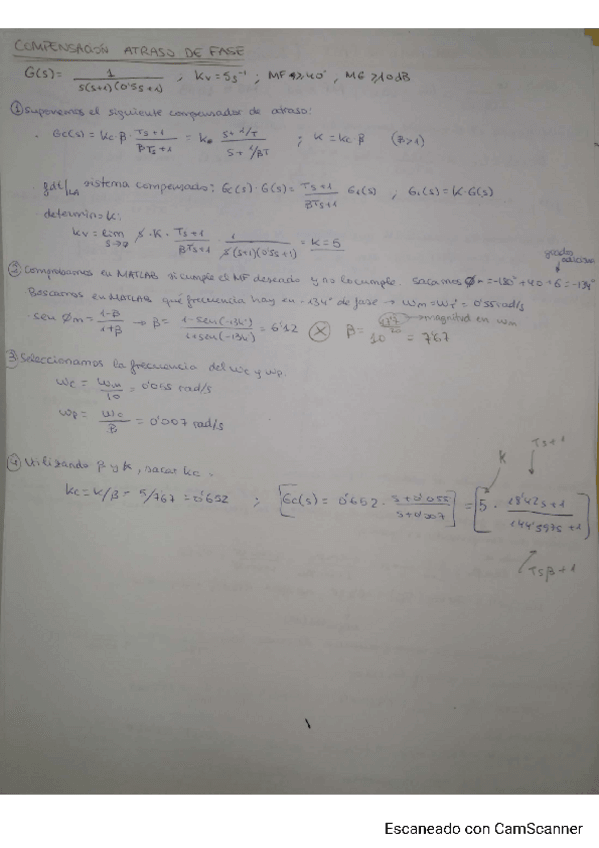 COMPENSACIÓN ATRASO DE FASE
G(s)= 1 / s(s+1)(0'5s+1) ; Kv=5s⁻¹ ; MF ≥ 40° , MG ≥ 10dB
① Suponemos el siguiente compensador de atraso:
· Gc(s) = kc·β · Ts+1 / βTs+1 = kc s+1/T / s+1/βT ; K = kc·β (β>1)
gdt/LA sistema compensado: Gc(s)·G(s) = Ts+1 / βTs+1 G₁(s) ; G₁(s) = K·G(s)
determino K:
Kv = lim s→0 s·K· Ts+1 / βTs+1 · 1 / s(s+1)(0'5s+1) = K = 5
② Comprobamos en MATLAB si cumple el MF deseado y no lo cumple. Sacamos Øm = -180°+40+6 = -134°
grados adicion.
Buscamos en MATLAB qué frecuencia hay en -134° de fase → ωm = ωf = 0'55 rad/s
· sen Øm = 1-β / 1+β → β = 1-sen(-134°) / 1+sen(-134) = 6'12 ⊗ β = 10 = 7'67
→ magnitud en ωm
③ Seleccionamos la frecuencia del ωc y ωp.
ωc = ωm / 10 = 0'055 rad/s
ωp = ωc / β = 0'007 rad/s
④ Utilizando β y K, sacar kc.
kc = K/β = 5/7'67 = 0'652 ; [Gc(s) = 0'652 · s+0'055 / s+0'007] = [5 · 18'42s+1 / 144'5975+1]
K
Ts+1
Tsβ+1
Escaneado con CamScanner